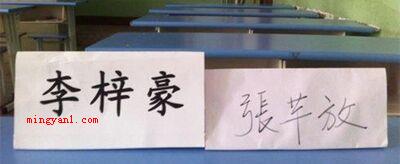 李梓豪
張芊放
mingyan1.com